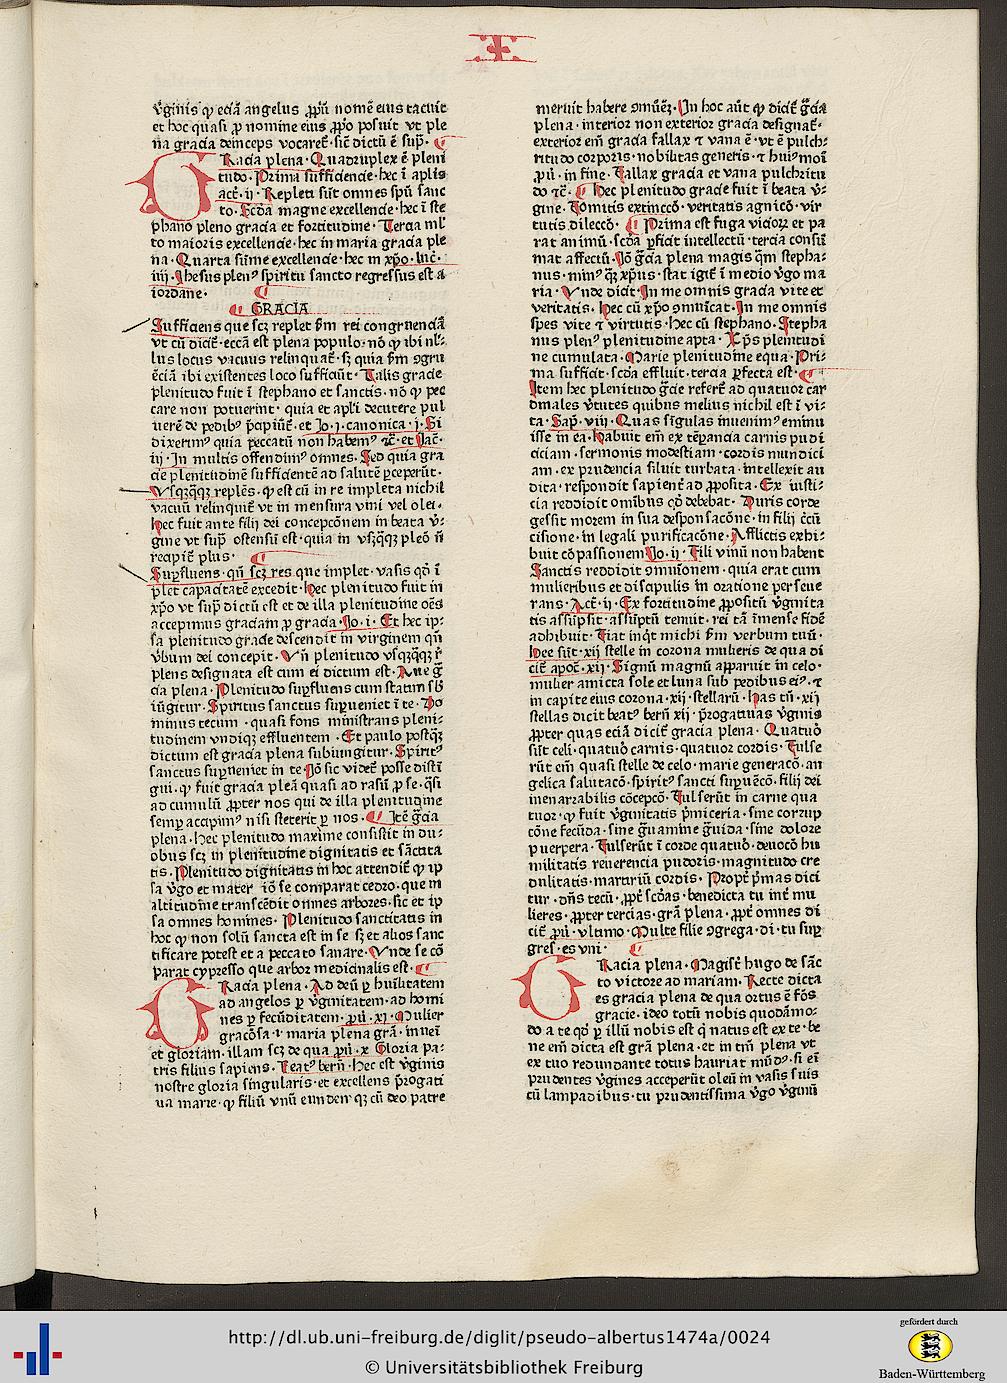 v̄ginis ꝙ eciā angelus ꝓpū nomē eius tacuit
et hoc quasi ꝓ nomine eius ꝓpo posuit vt ple
na gracia deinceps vocaret᷑· sic̄ dictū ē sup̄·
GRacia plena· Quadruplex ē pleni
tudo· Prima sufficiencie· hec ī aplis
act᷑· ij· Repleti sūt omnes spū sanc
to· Scda magne excellencie· hec ī ste
phano pleno gracia et fortitudine· Tercia ml̓
to maioris excellencie· hec in maria gracia ple
na· Quarta sūme excellencie· hec in xp̄o· luc̄·
iiij· Jhesus plenꝰ spiritu sancto regressus est a
iordane·
GRACIA
Sufficiens que scꝫ replet s̄m rei congruenciā
vt cū dicit᷑· eccā est plena populo· nō ꝙ ibi nl̓
lus locus vacuus relinquat᷑· sꝫ quia s̄m ↄgru
ēciā ibi existentes loco sufficiūt· Talis gracie
plenitudo fuit ī stephano et sanctis· nō ꝙ pec
care non potuerint· quia et apl̓i decutere pul
uerē de pedibꝰ p̄cipiūt᷑· et Jo· j· canonica· j· Si
dixerimꝰ quia peccatū non habemꝰ ⁊c̄· et Jac̄·
iij· In multis offendimꝰ omnes· Sed quia gra
cie plenitudinē sufficientē ad salutē ꝑceperūt·
Vsqꝫq̄qꝫ replēs· ꝙ est cū in re impleta nichil
vacuū relinquit᷑ vt in mensura vini vel olei·
hec fuit ante filij dei concepcōnem in beata v̄·
gine vt sup̄ ostensū est· quia in vsꝫq̄qꝫ pleō n̄
recipit᷑ plus·
Suꝑfluens· qn̄ scꝫ res que implet· vasis qō ī
plet capacitatē excedit· hec plenitudo fuit in
xp̄o vt sup̄ dictū est et de illa plenitudine oēs
accepimus graciam ꝓ gracia· Jo· i· Et hec ip·
sa plenitudo gracie descendit in virginem qn̄
v̄bum dei concepit· Vn̄ plenitudo vsqꝫq̄qꝫ r̄
plens designata est cum ei dictum est· Aue ḡ
cia plena· Plenitudo suꝑfluens cum statim sb̄
iūgitur· Spiritus sanctus suꝑueniet ī te· Do
minus tecum· quasi fons ministrans pleni·
tudinem vndiqꝫ effluentem· Et paulo postqꝫ
dictum est gracia plena subiungitur· Spiritꝰ
sanctus suꝑueniet in te· Jō sic videt᷑ posse distī
gui· ꝙ fuit gracia pleā quasi ad rasū ꝓ se· q̄si
ad cumulū ꝓpter nos qui de illa plenitudine
semꝑ accipimꝰ nisi steterit ꝑ nos· Itē ḡcia
plena· Hec plenitudo maxime consistit in du·
obus scꝫ in plenitudine dignitatis et sāctita
tis· Plenitudo dignitatis in hoc attendit᷑ ꝙ ip
sa v̄go et mater iō se comparat cedro· que in
altitudine transcēdit omnes arbores· sic et ip
sa omnes homines· Plenitudo sanctitatis in
hoc ꝙ non solū sancta est in se sꝫ et alios sanc
tificare potest et a peccato sanare· Vnde se cō
parat cypresso que arbor medicinalis est·
GRacia plena· Ad deū ꝑ huīlitatem
ad angelos ꝑ v̄ginitatem· ad homi
nes ꝑ fecūditatem· ꝓū· xi· Mulier
gracōsa· i· maria plena grā· inueī
et gloriam· illam scꝫ de qua ꝓū· x· Gloria pa·
tris filius sapiens· Beatꝰ bern̄· Hec est v̄ginis
nostre gloria singularis· et excellens p̄rogati
ua marie· ꝙ filiū vnū eundemqꝫ cū deo patre
meruit habere ↄmūēꝫ· In hoc aūt ꝙ dicit᷑ ḡcia
plena· interior non exterior gracia designat᷑·
exterior em̄ gracia fallax ⁊ vana ē· vt ē pulch·
ritudo corporis· nobilitas generis· ⁊ huiꝰmōi
ꝓū· in fine· Fallax gracia et vana pulchritu
do ⁊c̄· Hec plenitudo gracie fuit ī beata v̄·
gine· Fomitis extinccō· veritatis agnicō· vir
tutis dileccō· Prima est fuga vicioꝝ et pa
rat animū· scda ꝑficit intellectū· tercia consū
mat affectū· Jō ḡcia plena magis q̄m stepha·
nus· minꝰ qꝫ xp̄us· stat igit᷑ ī medio v̄go ma
ria· Vnde dicit· In me omnis gracia vite et
veritatis· hec cū xp̄o ↄmūicat· In me omnis
spes vite ⁊ virtutis· hec cū stephano· Stepha
nus plenꝰ plenitudine apta· Xp̄s plenitudi
ne cumulata· Marie plenitudine equa· Pri·
ma sufficit· scda effluit· tercia ꝑfecta est·
Item hec plenitudo ḡcie refert᷑ ad quatuor car
dinales v̄tutes quibus melius nichil est ī vi·
ta· Sap̄· viij· Quas sīgulas inuenimꝰ eminu
isse in ea· habuit em̄ ex tēꝑancia carnis pudi
ciciam· sermonis modestiam· cordis mundici
am· ex prudencia siluit turbata· intellexit au
dita· respondit sapient᷑ ad ꝓposita· Ex iusti·
cia reddidit omībus qō debebat· Duris corde
gessit morem in sua desponsacōne· in filij c̄cū
cisione· in legali purificacōne· Afflictis exhi·
buit cōpassionem Jo· ij· Fili vinū non habent
Sanctis reddidit ↄmūionem· quia erat cum
mulieribus et discipulis in oratione perseue
rans· Act᷑· ij· Ex fortitudine ꝓpositū v̄ginita
tis assūpsit· assūptū tenuit· rei tā īmense fidē
adhibuit· Fiat inq̄t michi s̄m verbum tuū·
Hee sūt· xij stelle in corona mulieris de qua di
cit᷑ apoc̄· xij· Signū magnū apparuit in celo·
mulier amicta sole et luna sub pedibus eiꝰ· ⁊
in capite eius corona· xij· stellarū· Has tn̄· xij
stellas dicit beatꝰ bern̄ xij· p̄rogatiuas v̄ginis
ꝓpter quas eciā dicit᷑ gracia plena· Quatuō
sūt celi· quatuō carnis· quatuor cordis· Fulse
rūt em̄ quasi stelle de celo· marie generacō· an
gelica salutacō· spiritꝰ sancti suꝑuēcō· filij dei
inenarrabilis cōcepcō· Fulserūt in carne qua
tuor· ꝙ fuit v̄ginitatis p̄miceria· sine corrup
cōne fecūda· sine ḡuamine ḡuida· sine dolore
puerpera· Fulserūt ī corde quatuō· deuocō hu
militatis· reuerencia pudoris· magnitudo cre
dulitatis· martiriū cordis· Propt᷑ p̄mas dici
tur· dn̄s tecū· ꝓpt᷑ scd̄as· benedicta tu int᷑ mu
lieres· ꝓpter tercias· grā plena· ꝓpt᷑ omnes di
cit᷑ ꝓū· vltimo· Multe filie ↄgrega· di· tu suꝑ
gres· es vni·
GRacia plena· Magist᷑ hugo de sāc
to victore ad mariam· Recte dicta
es gracia plena de qua ortus ē fōs
gracie· ideo totū nobis quodāmo·
do a te qō ꝑ illū nobis est q̄ natus est ex te· be
ne em̄ dicta est grā plena· et in tm̄ plena vt
ex tuo redundante totus hauriat mūdꝰ· si eī
prudentes v̄gines acceperūt oleū in vasis suis
cū lampadibus· tu prudentissima v̄go v̄ginū
http://dl.ub.uni-freiburg.de/diglit/pseudo-albertus1474a/0024
© Universitätsbibliothek Freiburg
gefördert durch
Baden-Württemberg